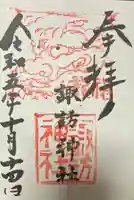 奉拝
諏訪神社
令和五年十月十四日
諏訪
神社